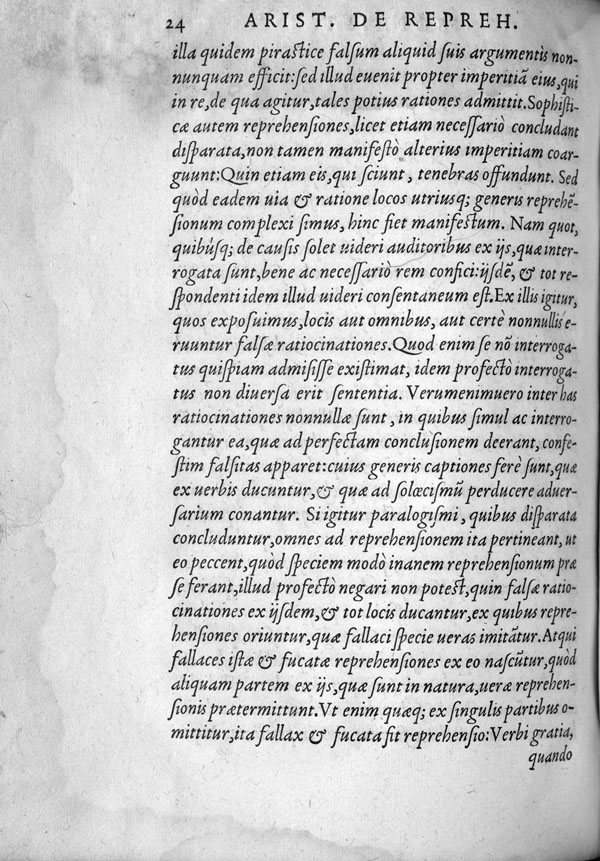 24 ARIST. DE REPREH.
illa quidem pirastice falsum aliquid suis argumentis non-
nunquam efficit: sed illud euenit propter imperitiã eius, qui
in re, de qua agitur, tales potius rationes admittit. Sophisti-
cæ autem reprehensiones, licet etiam necessariò concludant
disparata, non tamen manifestò alterius imperitiam coar-
guunt: Quin etiam eis, qui sciunt, tenebras offundunt. Sed
quòd eadem uia & ratione locos utriusq; generis reprehẽ-
sionum complexi simus, hinc fiet manifestum. Nam quot,
quibúsq; de causis solet uideri auditoribus ex ijs, quæ inter-
rogata sunt, bene ac necessariò rem confici: ijsdẽ, & tot re-
spondenti idem illud uideri consentaneum est. Ex illis igitur,
quos exposuimus, locis aut omnibus, aut certè nonnullis e-
ruuntur falsæ ratiocinationes. Quod enim se nõ interroga-
tus quispiam admisisse existimat, idem profectò interroga-
tus non diuersa erit sententia. Verumenimuero inter has
ratiocinationes nonnullæ sunt, in quibus simul ac interro-
gantur ea, quæ ad perfectam conclusionem deerant, confe-
stim falsitas apparet: cuius generis captiones ferè sunt, quæ
ex uerbis ducuntur, & quæ ad solœcismũ perducere aduer-
sarium conantur. Si igitur paralogismi, quibus disparata
concluduntur, omnes ad reprehensionem ita pertineant, ut
eo peccent, quòd speciem modò inanem reprehensionum præ
se ferant, illud profectò negari non potest, quin falsæ ratio-
cinationes ex ijsdem, & tot locis ducantur, ex quibus repre-
hensiones oriuntur, quæ fallaci specie ueras imitãtur. Atqui
fallaces istæ & fucatæ reprehensiones ex eo nascũtur, quòd
aliquam partem ex ijs, quæ sunt in natura, ueræ reprehen-
sionis prætermittunt. Vt enim quæq; ex singulis partibus o-
mittitur, ita fallax & fucata fit reprehensio: Verbi gratia,
quando